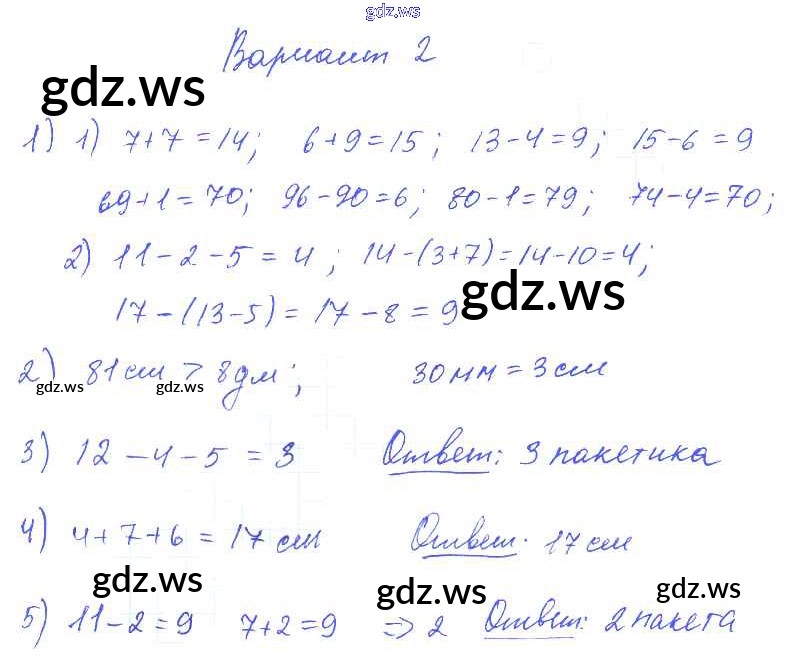 gdz.ws
Вариант 2
gdz.ws
1) 1) 7+7=14; 6+9=15; 13-4=9; 15-6=9
69+1=70; 96-90=6; 80-1=79; 74-4=70;
2) 11-2-5=4; 14-(3+7)=14-10=4;
17-(13-5)=17-8=9
gdz.ws
2) 81 см > 8 дм; 30 мм = 3 см
gdz.ws gdz.ws
3) 12-4-5=3 Ответ: 3 пакетика
4) 4+7+6=17 см Ответ. 17 см
gdz.ws gdz.ws gdz.ws
5) 11-2=9 7+2=9 => 2 Ответ: 2 пакета